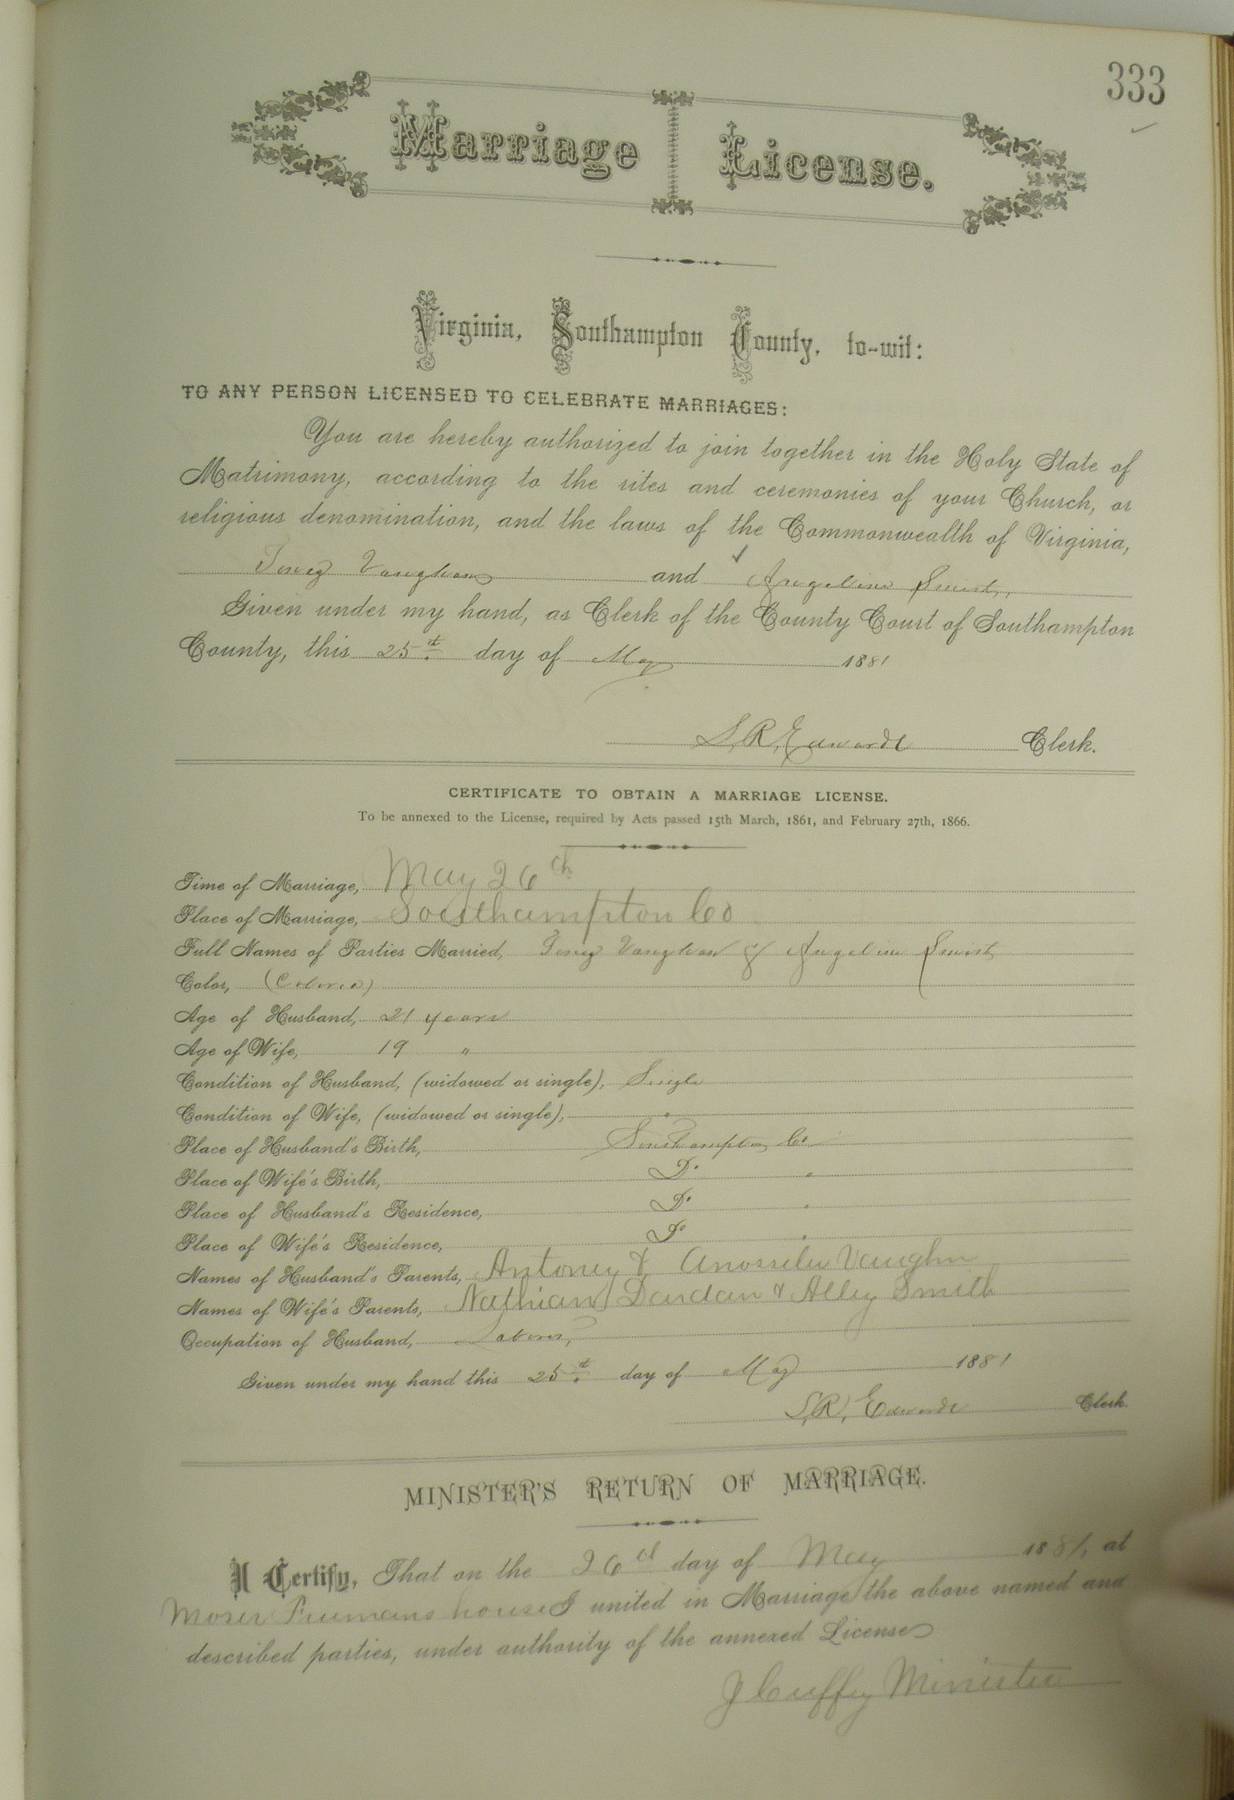 333
Marriage License.
Virginia, Southampton County, to-wit:
TO ANY PERSON LICENSED TO CELEBRATE MARRIAGES:
You are hereby authorized to join together in the Holy State of
Matrimony, according to the rites and ceremonies of your Church, or
religious denomination, and the laws of the Commonwealth of Virginia,
Vaughan and Angeline
Given under my hand, as Clerk of the County Court of Southampton
County, this 25th day of May 1881
S, R, Edwards Clerk.
CERTIFICATE TO OBTAIN A MARRIAGE LICENSE.
To be annexed to the License, required by Acts passed 15th March, 1861, and February 27th, 1866.
Time of Marriage, May 26th
Place of Marriage, Southampton Co
Full Names of Parties Married, Vaughan & Angeline
Color, (Colored)
Age of Husband, 21 years
Age of Wife, 19 "
Condition of Husband, (widowed or single), Single
Condition of Wife, (widowed or single), "
Place of Husband's Birth, Southampton Co
Place of Wife's Birth, Do "
Place of Husband's Residence, Do "
Place of Wife's Residence, Do "
Names of Husband's Parents, Antoney & Vaughn
Names of Wife's Parents, Nathian Dardan & Alley Smith
Occupation of Husband, Laborer,
Given under my hand this 25th day of May 1881
S, R, Edwards Clerk.
MINISTER'S RETURN OF MARRIAGE.
I Certify, That on the 26d day of May 1881, at
house I united in Marriage the above named and
described parties, under authority of the annexed License
J Cuffy Minister